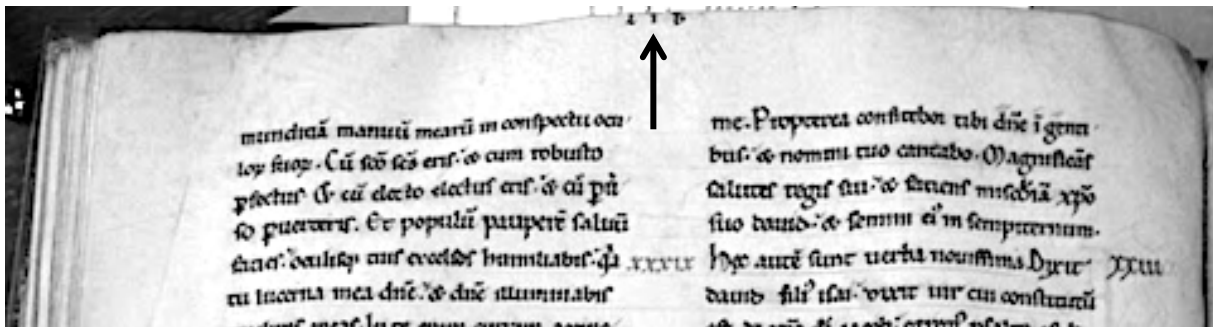 mundiciā manuū mearū in conspectu ocu
loꝝ suoꝝ. Cū scō scs eris: & cum robusto
pfectus. & cū electo electus eris: & cū
so puerteris. Et populū pauperē saluū
facies: oculisq; tuis excelsos humiliabis. xxxix
tu lucerna mea dñe: & dñe illuminabis
meas. In te enim curram
me. Propterea confitebor tibi dñe ī genti
bus: & nomini tuo cantabo. Magnificās
salutes regis sui: & faciens xpō
suo dauid: & semini ei' in sempiternum.
Hec autē sunt uerba nouissima. Dixit XXIII
dauid fili' isai. dixit uir cui constitutū